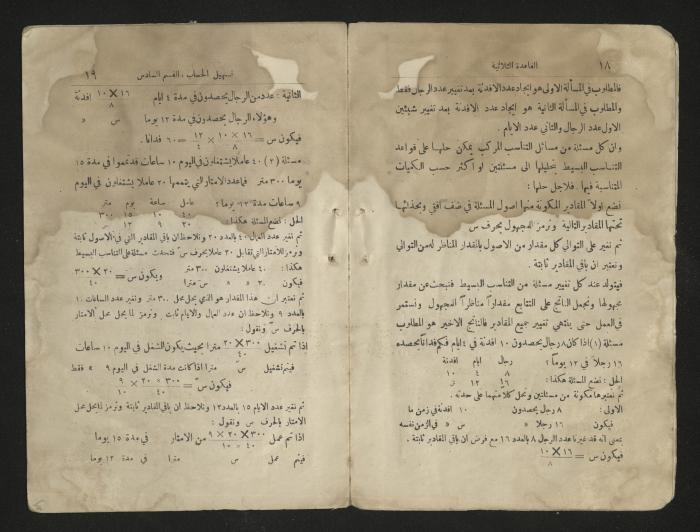 ١٨
القاعدة الثلاثية
فالمطلوب في المسألة الاولى هو ايجاد عدد الافدنة بعد تغيير عدد الرجال فقط
والمطلوب في المسألة الثانية هو ايجاد عدد الافدنة بعد تغيير شيئين
الاول عدد الرجال والثاني عدد الايام .
وان كل مسئلة من مسائل التناسب المركب يمكن حلها على قواعد
التناسب البسيط بتحليلها الى مسئلتين او اكثر حسب الكميات
المتناسبة فيها . فلاجل حلها :
نضع اولاً المقادير المكونة منها اصول المسئلة في صف افقي وبحذائها
تحتها المقادير الثانية ونرمز للمجهول بحرف س
ثم نغير على التوالي كل مقدار من الاصول بالمقدار المناظر له من التوالي
ونعتبر ان باقي المقادير ثابتة .
فيتولد عند كل تغيير مسئلة من التناسب البسيط فنبحث عن مقدار
مجهولها ونجعل الناتج على التتابع مقداراً مناظراً للمجهول ونستمر
في العمل حتى ينتهي تغيير جميع المقادير فالناتج الاخير هو المطلوب
مسئلة (١) اذا كان ٨ رجال يحصدون ١٠ افدنة في ٤ ايام فكم فداناً يحصده
١٦ رجلاً في ١٢ يوماً ؟
رجال ايام افدنة
الحل : نضع المسئلة هكذا : ٨ ٤ ١٠
١٦ ١٢ س
ثم نعتبرها مكونة من مسئلتين ونحل كلا منهما على حدته .
الاولى : ٨ رجال يحصدون ١٠ افدنة في زمن ما
فيكون ١٦ رجلا » س » في الزمن نفسه
بمعنى انه قد غيرنا عدد الرجال ٨ بالعدد ١٦ مع فرض ان باقي المقادير ثابتة .
فيكون س = ١٦ × ١٠ / ٨
تسهيل الحساب ، القسم السادس
١٩
الثانية : عدد من الرجال يحصدون في مدة ٤ ايام ١٦ × ١٠ / ٨ افدنة
وهؤلاء الرجال يحصدون في مدة ١٢ يوما س »
فيكون س = ١٦ × ١٠ / ٨ × ١٢ / ٤ = ٦٠ فدانا .
مسئلة (٢) ٤٠ عاملا يشتغلون في اليوم ١٠ ساعات فد تمموا في مدة ١٥
يوما ٣٠٠ متر فما عدد الامتار التي يتممها ٢٠ عاملا يشتغلون في اليوم
٩ ساعات مدة ١٢ يوما ؟ عامل ساعة يوم متر
الحل : نضع المسئلة هكذا : ٤٠ ١٠ ١٥ ٣٠٠
٢٠ ٩ ١٢ س
ثم نغير عدد العمال ٤٠ بالعدد ٢٠ ونلاحظ ان باقي المقادير التي في الاصول ثابتة
ونرمز للامتار التي تقابل ٢٠ عاملا بحرف س فتحدث مسئلة على التناسب البسيط
هكذا : ٤٠ عاملا يشتغلون ٣٠٠ متر
فيكون ٢٠ » » س مترا ويكون س = ٣٠٠ × ٢٠ / ٤٠
ثم نعتبر ان هذا المقدار هو الذي يحل محل ٣٠٠ متر ونغير عدد الساعات ١٠
بالعدد ٩ ونلاحظ ان عدد العمال والايام ثابت ونرمز لما يحل محل الامتار
بالحرف س ونقول :
اذا تم تشغيل ٣٠٠ × ٢٠ / ٤٠ مترا بحيث يكون الشغل في اليوم ١٠ ساعات
فيتم تشغيل س مترا اذا كانت مدة الشغل في اليوم ٩ » فقط
فيكون س = ٣٠٠ × ٢٠ × ٩ / ٤٠ × ١٠
ثم نغير عدد الايام ١٥ بالعدد ١٢ ونلاحظ ان باقي المقادير ثابتة ونرمز لما يحل محل
الامتار بالحرف س ونقول :
اذا تم عمل ٣٠٠ × ٢٠ × ٩ / ٤٠ × ١٠ من الامتار في مدة ١٥ يوما
فيتم عمل س مترا في مدة ١٢ يوما